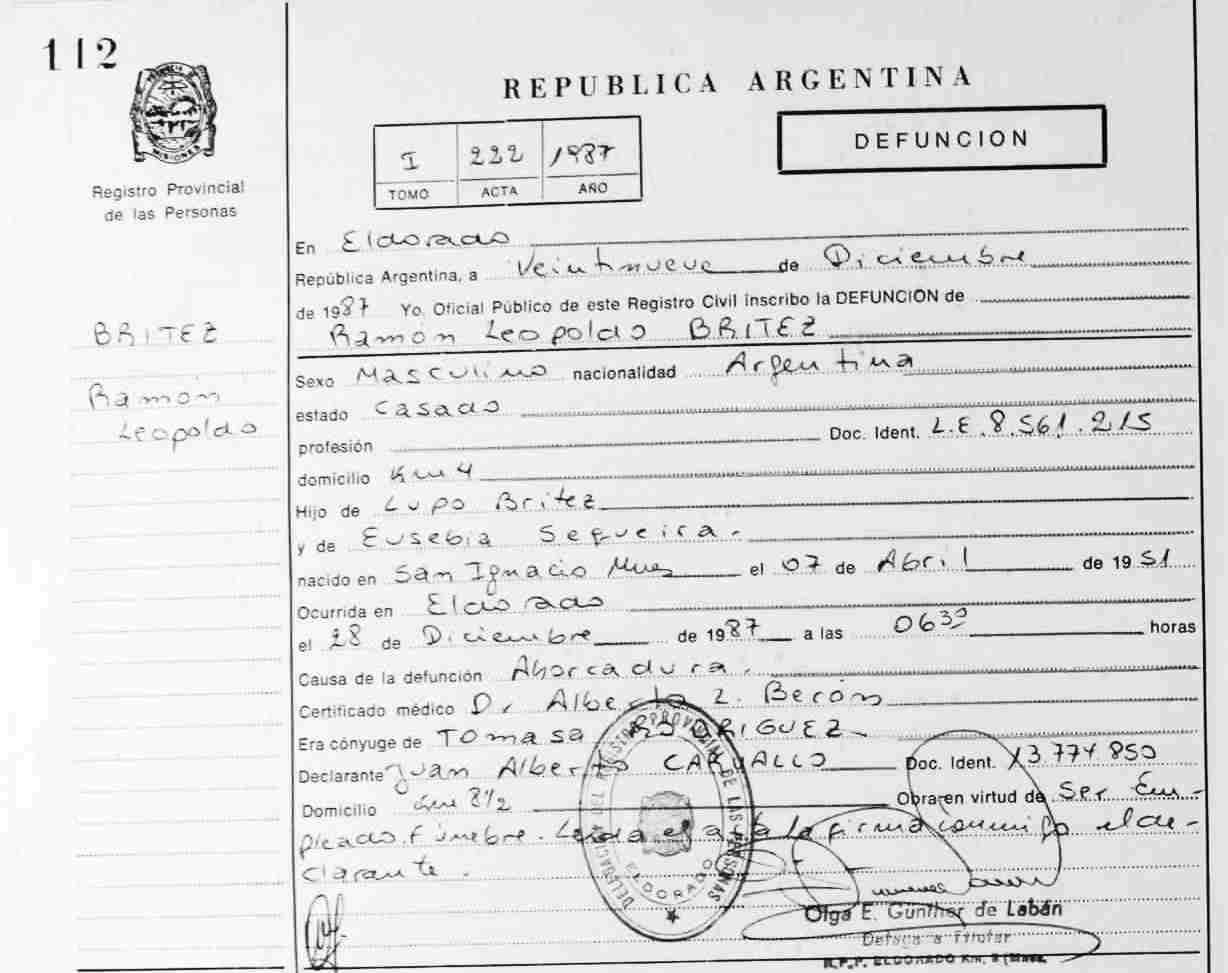 112
PROVINCIA DE
MISIONES
Registro Provincial
de las Personas
REPUBLICA ARGENTINA
DEFUNCION
I 222 1987
TOMO ACTA AÑO
BRITEZ
Ramón
Leopoldo
En Eldorado
República Argentina, a Veintinueve de Diciembre
de 1987 Yo, Oficial Público de este Registro Civil inscribo la DEFUNCION de
Ramón Leopoldo BRITEZ
Sexo Masculino nacionalidad Argentina
estado Casado
profesión Doc. Ident. L.E. 8.561.215
domicilio Km 4
Hijo de Lupo Britez
y de Eusebia Segueira.
nacido en San Ignacio Mnes el 07 de Abril de 1951
Ocurrida en Eldorado
el 28 de Diciembre de 1987 a las 0630 horas
Causa de la defunción Ahorcadura.
Certificado médico Dr Alberto Z. Berón
Era cónyuge de Tomasa RODRIGUEZ
Declarante Juan Alberto CARVALLO Doc. Ident. 13.774.850
Domicilio Km 8½ Obra en virtud de Ser Em-
pleado fúnebre. Leida el acta la firma conmigo el de-
clarante.
DELEGACION DEL REGISTRO PROVINCIAL DE LAS PERSONAS
ELDORADO
Olga E. Günther de Labán
R.P.P. ELDORADO Km. 9 (Mnes.